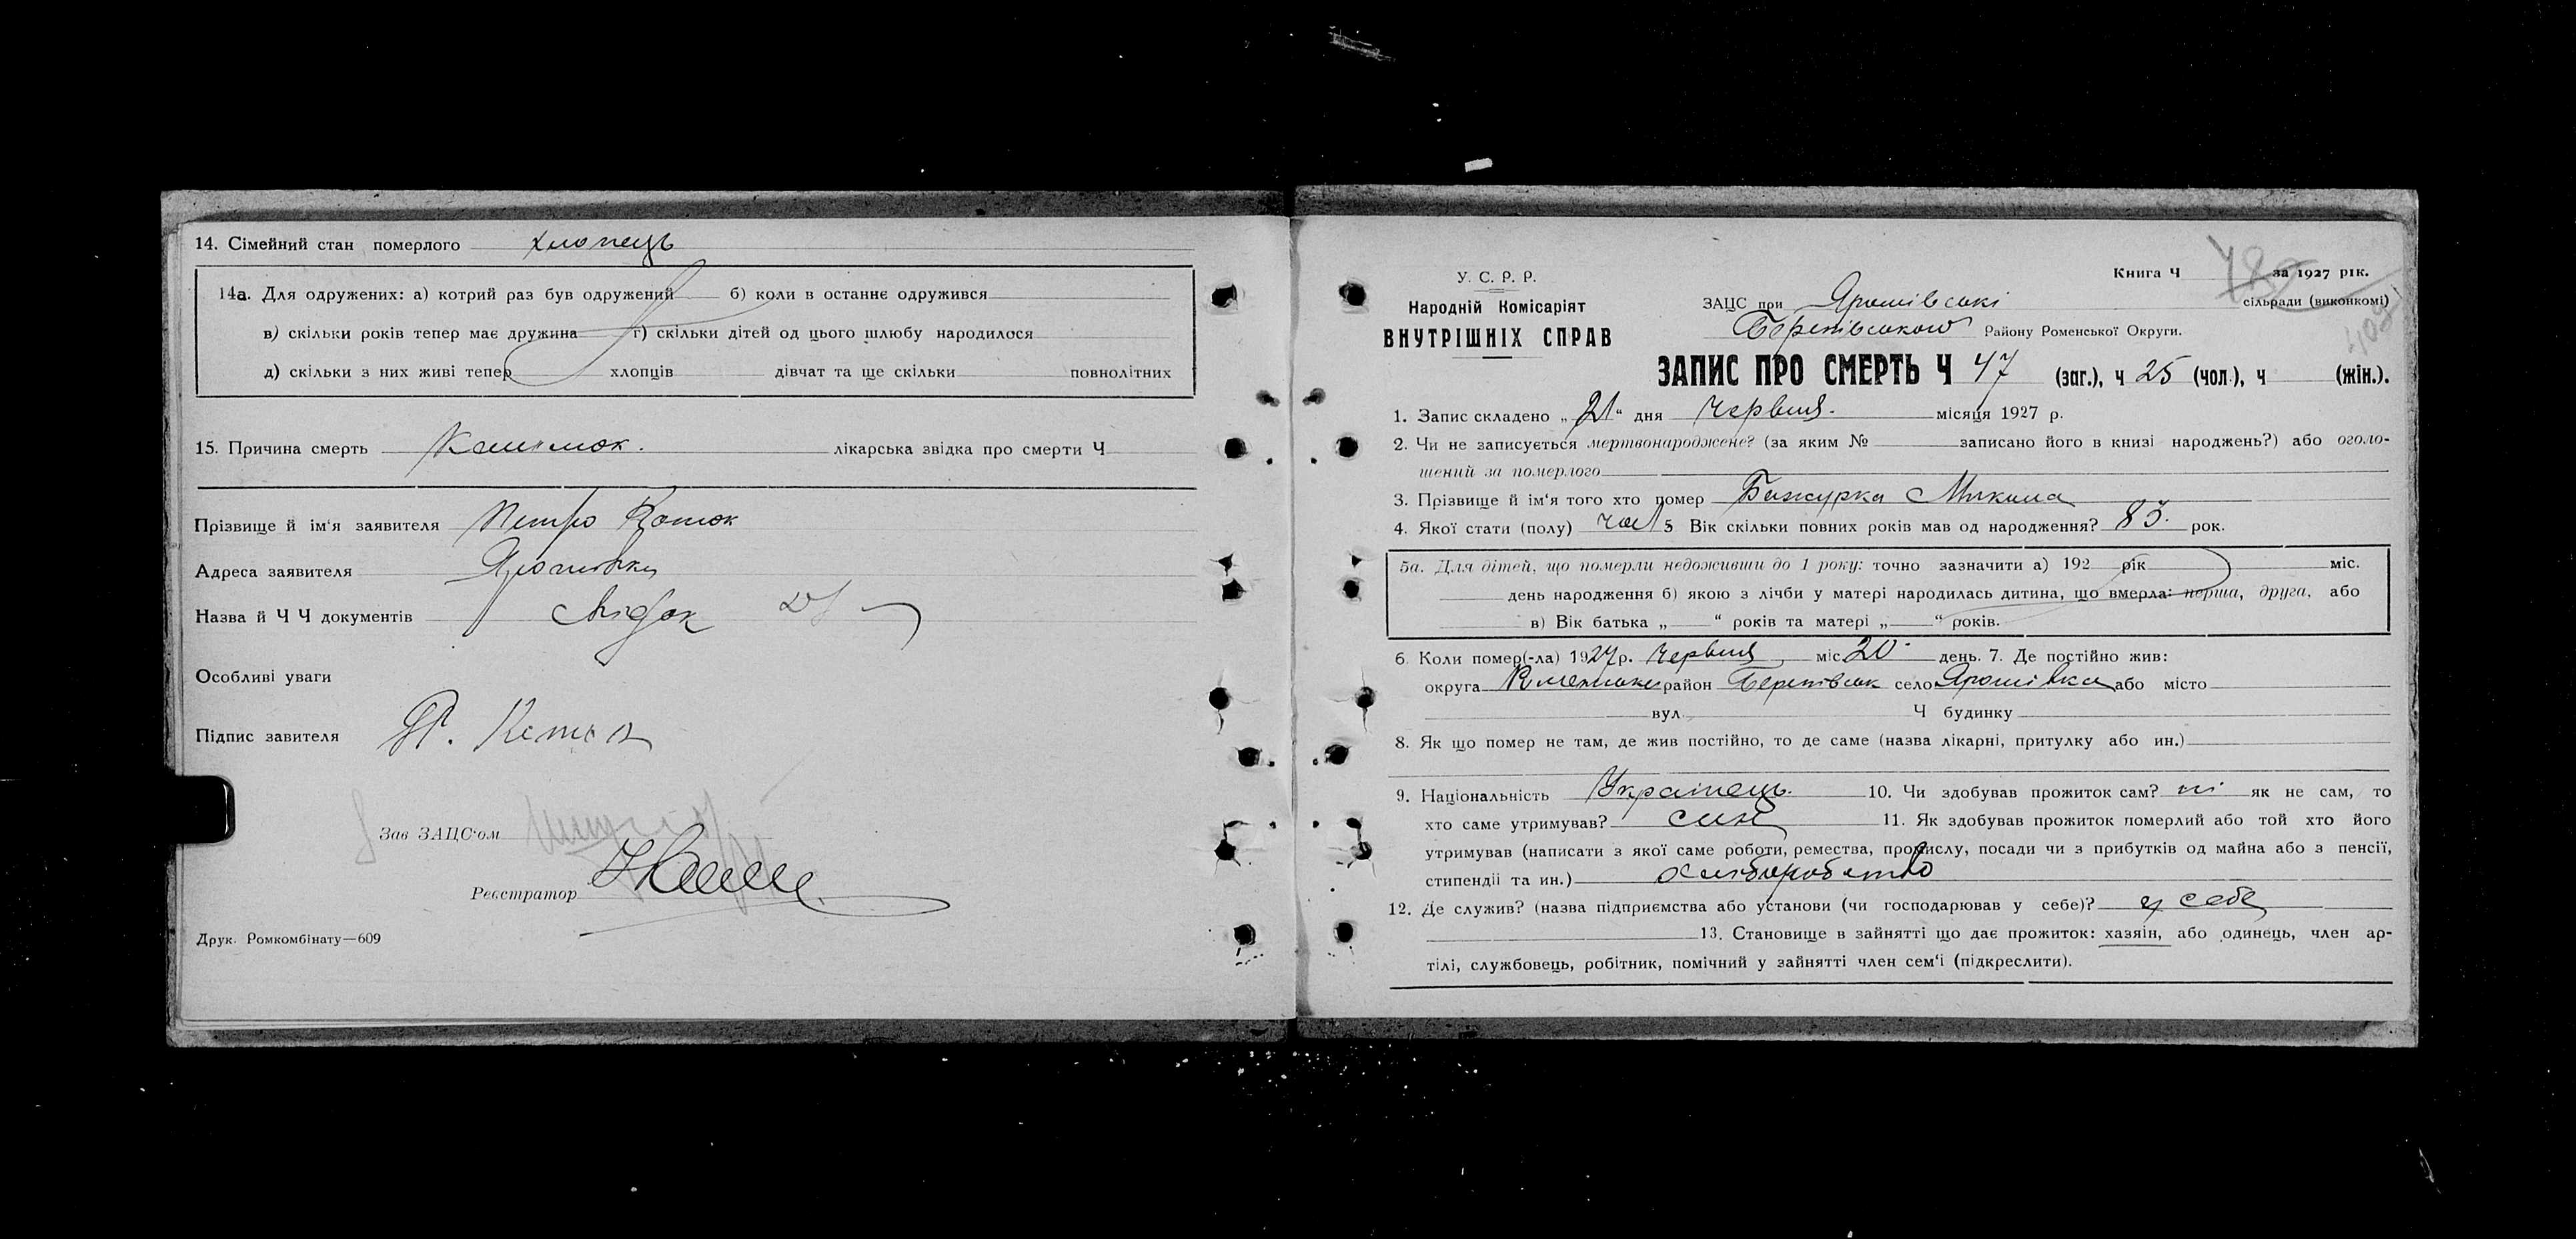 14. Сімейний стан померлого хлопець
14а. Для одружених: а) котрий раз був одружений б) коли в останнє одружився
в) скільки років тепер має дружина г) скільки дітей од цього шлюбу народилося
д) скільки з них живі тепер хлопців дівчат та ще скільки повнолітних
15. Причина смерть лікарська звідка про смерти Ч
Прізвище й ім'я заявителя Петро
Адреса заявителя
Назва й Ч Ч документів
Особливі уваги
Підпис завителя
Зав ЗАЦС'ом
Реєстратор
Друк. Ромкомбінату—609
Книга Ч за 1927 рік.
У. С. Р. Р.
Народній Комісаріят
ВНУТРІШНІХ СПРАВ
ЗАЦС при Ярошівські сільради (виконкомі)
Районy Роменської Округи.
ЗАПИС ПРО СМЕРТЬ Ч 47 (заг.), ч 25 (чол.), ч (жін.).
1. Запис складено „21“ дня Червня місяця 1927 р.
2. Чи не записується мертвонароджене? (за яким № записано його в книзі народжень?) або оголо-
шений за померлого
3. Прізвище й ім'я того хто помер Бажурка Микола
4. Якої стати (полу) чол 5 Вік скільки повних років мав од народження? 83 рок.
5а. Для дітей, що померли недоживши до 1 року: точно зазначити а) 192 рік міс.
день народження б) якою з лічби у матері народилась дитина, що вмерла: перша, друга, або
в) Вік батька „ “ років та матері „ “ років.
6. Коли помер(-ла) 1927р. Червня міс 20 день. 7. Де постійно жив:
округа район село Ярошівка або місто
вул. Ч будинку
8. Як що помер не там, де жив постійно, то де саме (назва лікарні, притулку або ин.)
9. Національність Українець 10. Чи здобував прожиток сам? ні як не сам, то
хто саме утримував? син 11. Як здобував прожиток померлий або той хто його
утримував (написати з якої саме роботи, ремества, промислу, посади чи з прибутків од майна або з пенсії,
стипендії та ин.) хліборобство
12. Де служив? (назва підприємства або установи (чи господарював у себе)? у себе
13. Становище в зайнятті що дає прожиток: хазяін, або одинець, член ар-
тілі, службовець, робітник, помічний у зайнятті член сем'і (підкреслити).